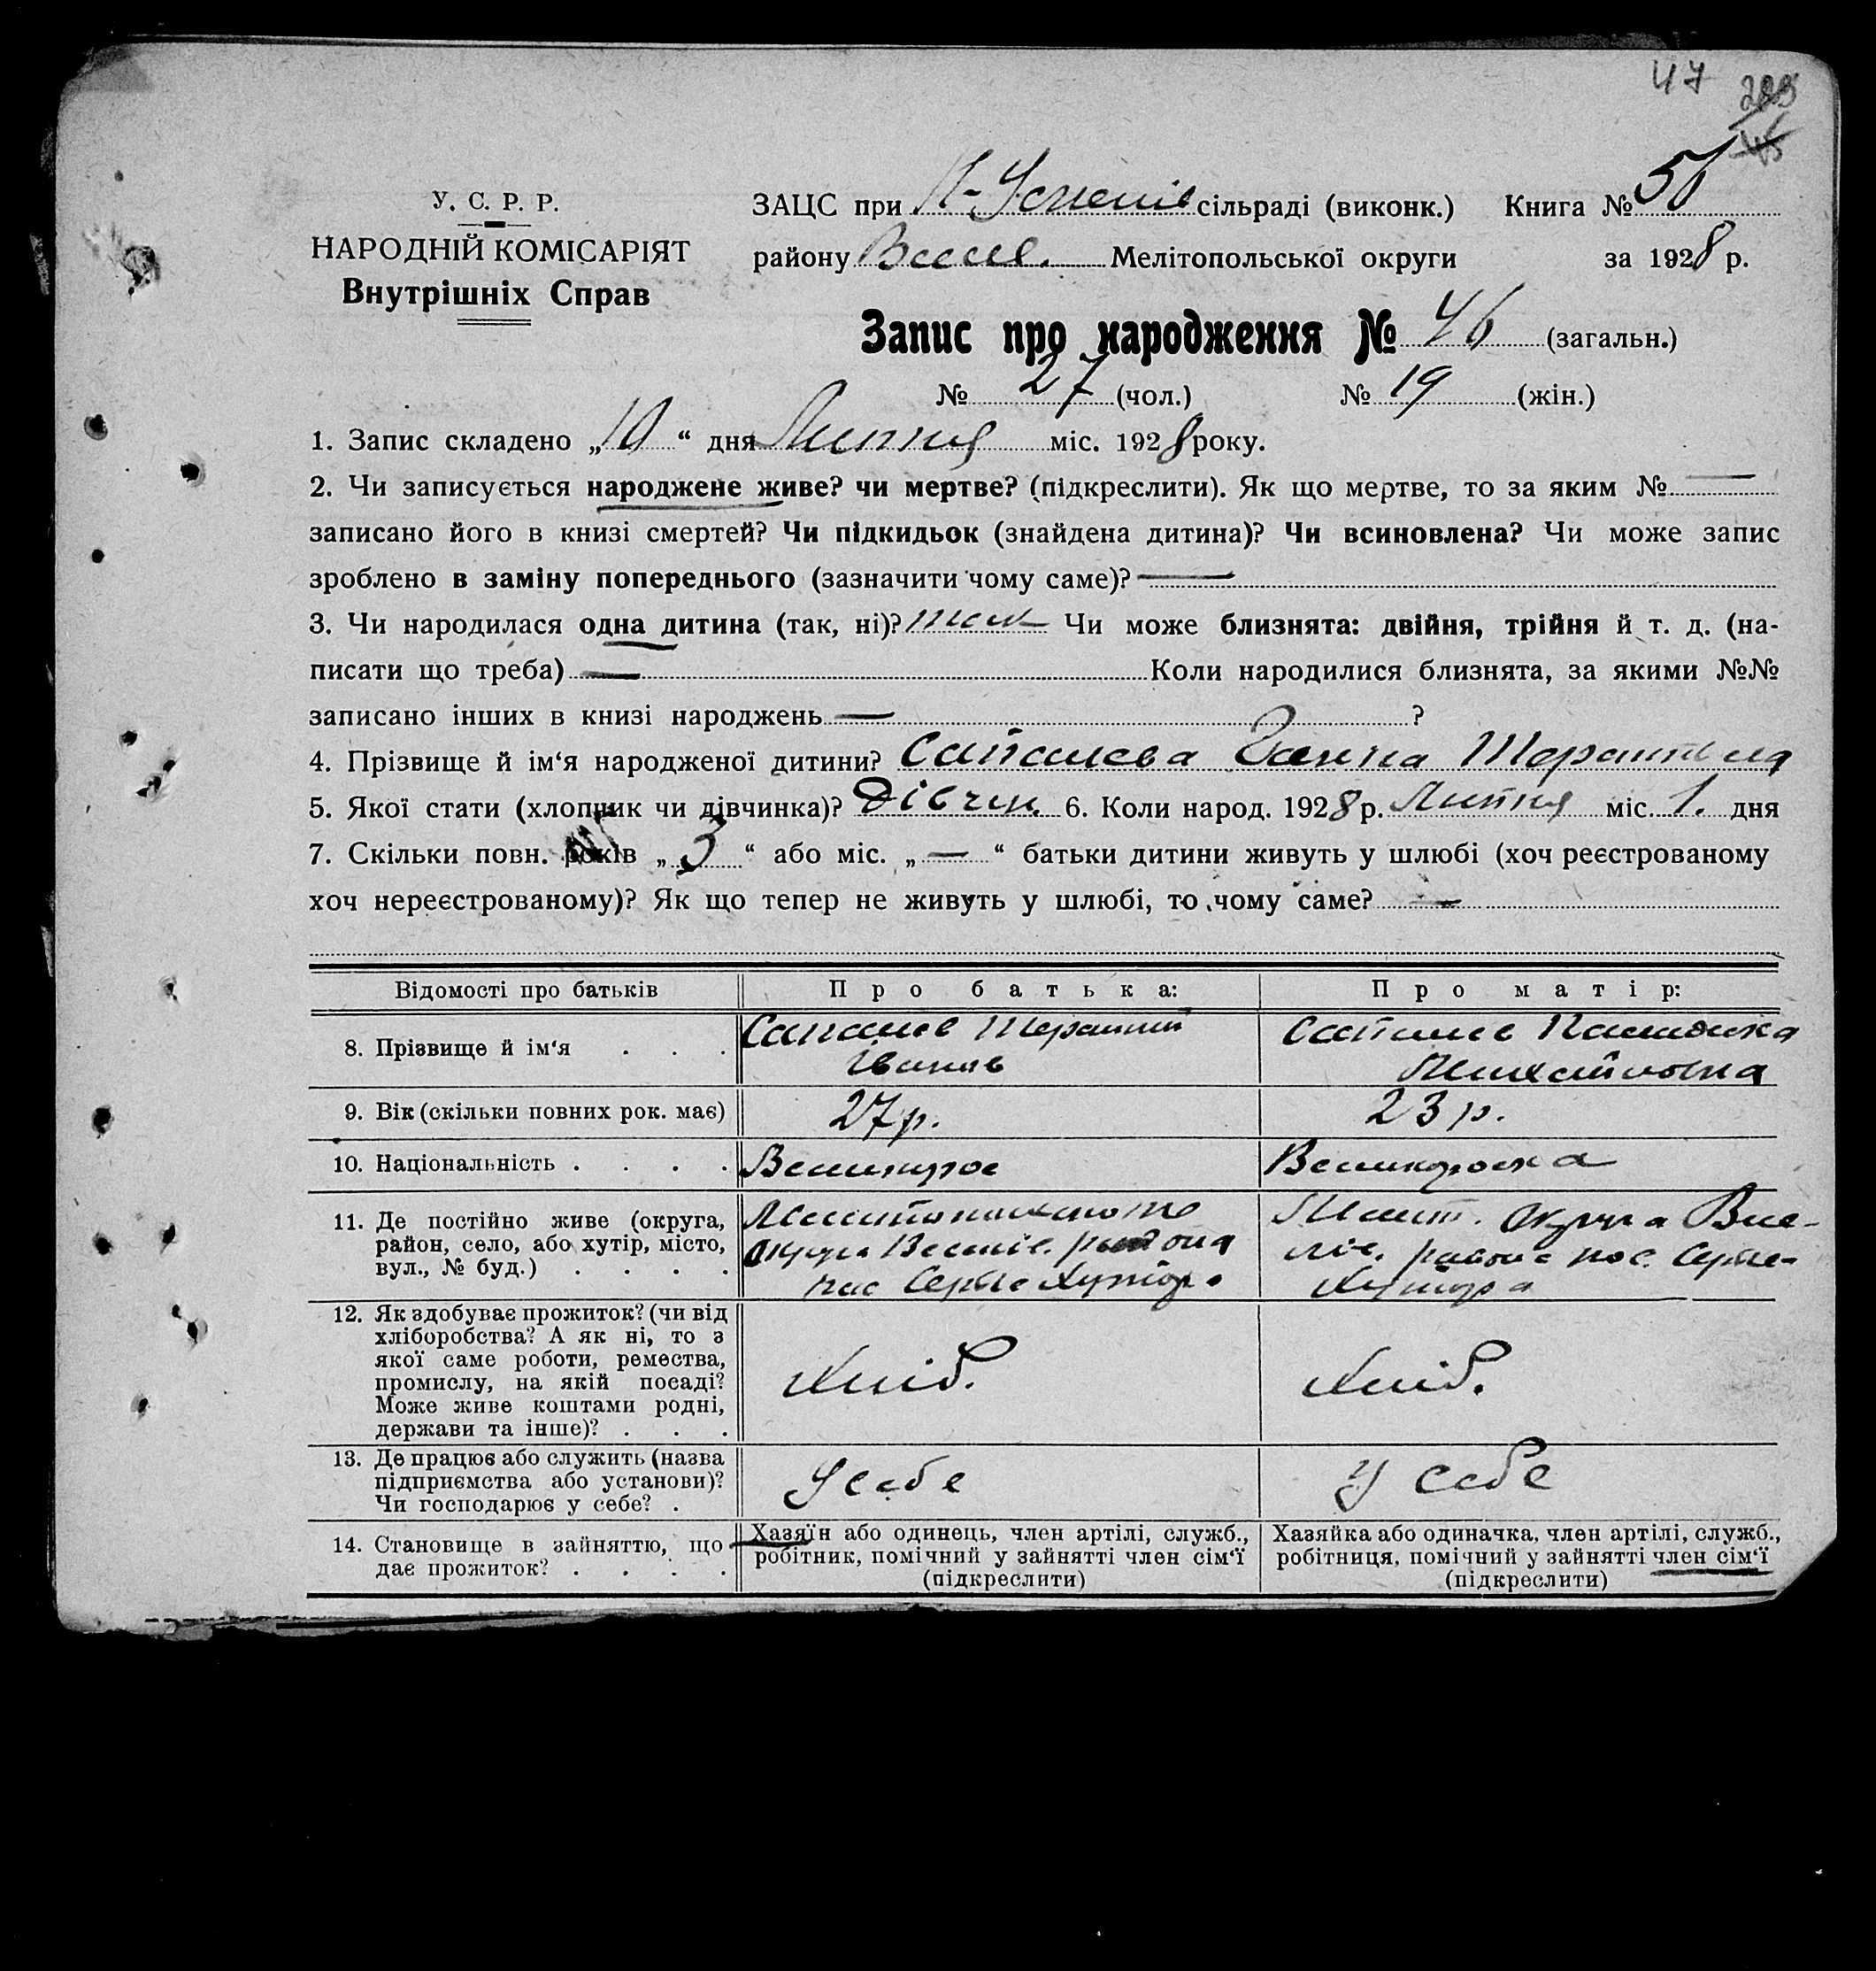 47
У. С. Р. Р.
НАРОДНІЙ КОМІСАРІЯТ
Внутрішніх Справ
ЗАЦС при Н-Успенів сільраді (виконк.) Книга № 56
району Весел. Мелітопольської округи за 1928 р.
Запис про народження № 46 (загальн.)
№ 27 (чол.) № 19 (жін.)
1. Запис складено „10“ дня Липня міс. 1928 року.
2. Чи записується народжене живе? чи мертве? (підкреслити). Як що мертве, то за яким № —
записано його в книзі смертей? Чи підкидьок (знайдена дитина)? Чи всиновлена? Чи може запис
зроблено в заміну попереднього (зазначити чому саме)? —
3. Чи народилася одна дитина (так, ні)? так Чи може близнята: двійня, трійня й т. д. (на-
писати що треба) — Коли народилися близнята, за якими №№
записано інших в книзі народжень — ?
4. Прізвище й ім‘я народженої дитини? Ганна
5. Якої стати (хлопчик чи дівчинка)? Дівчин. 6. Коли народ. 1928 р. Липня міс. 1. дня
7. Скільки повн. років „3“ або міс. „—“ батьки дитини живуть у шлюбі (хоч реєстрованому
хоч нереєстрованому)? Як що тепер не живуть у шлюбі, то чому саме? —
Відомості про батьків Про батька: Про матір:
8. Прізвище й ім‘я . . .
Іванов
Михайловна
9. Вік (скільки повних рок. має) 27 р. 23 р.
10. Національність . . . . Великорос Великороска
11. Де постійно живе (округа,
район, село, або хутір, місто,
вул., № буд.) . . . .
Округа Веселів. района
Меліт. Округа Висе-
лів. района пос.
12. Як здобуває прожиток? (чи від
хліборобства? А як ні, то з
якої саме роботи, ремества,
промислу, на якій посаді?
Може живе коштами родні,
держави та інше)? . . .
Хліб. Хліб.
13. Де працює або служить (назва
підприємства або установи)?
Чи господарює у себе? .
У себе У себе
14. Становище в зайняттю, що
дає прожиток? . . . .
Хазяїн або одинець, член артілі, служб.,
робітник, помічний у зайнятті член сім‘ї
(підкреслити)
Хазяйка або одиначка, член артілі, служб.,
робітниця, помічний у зайнятті член сім‘ї
(підкреслити)